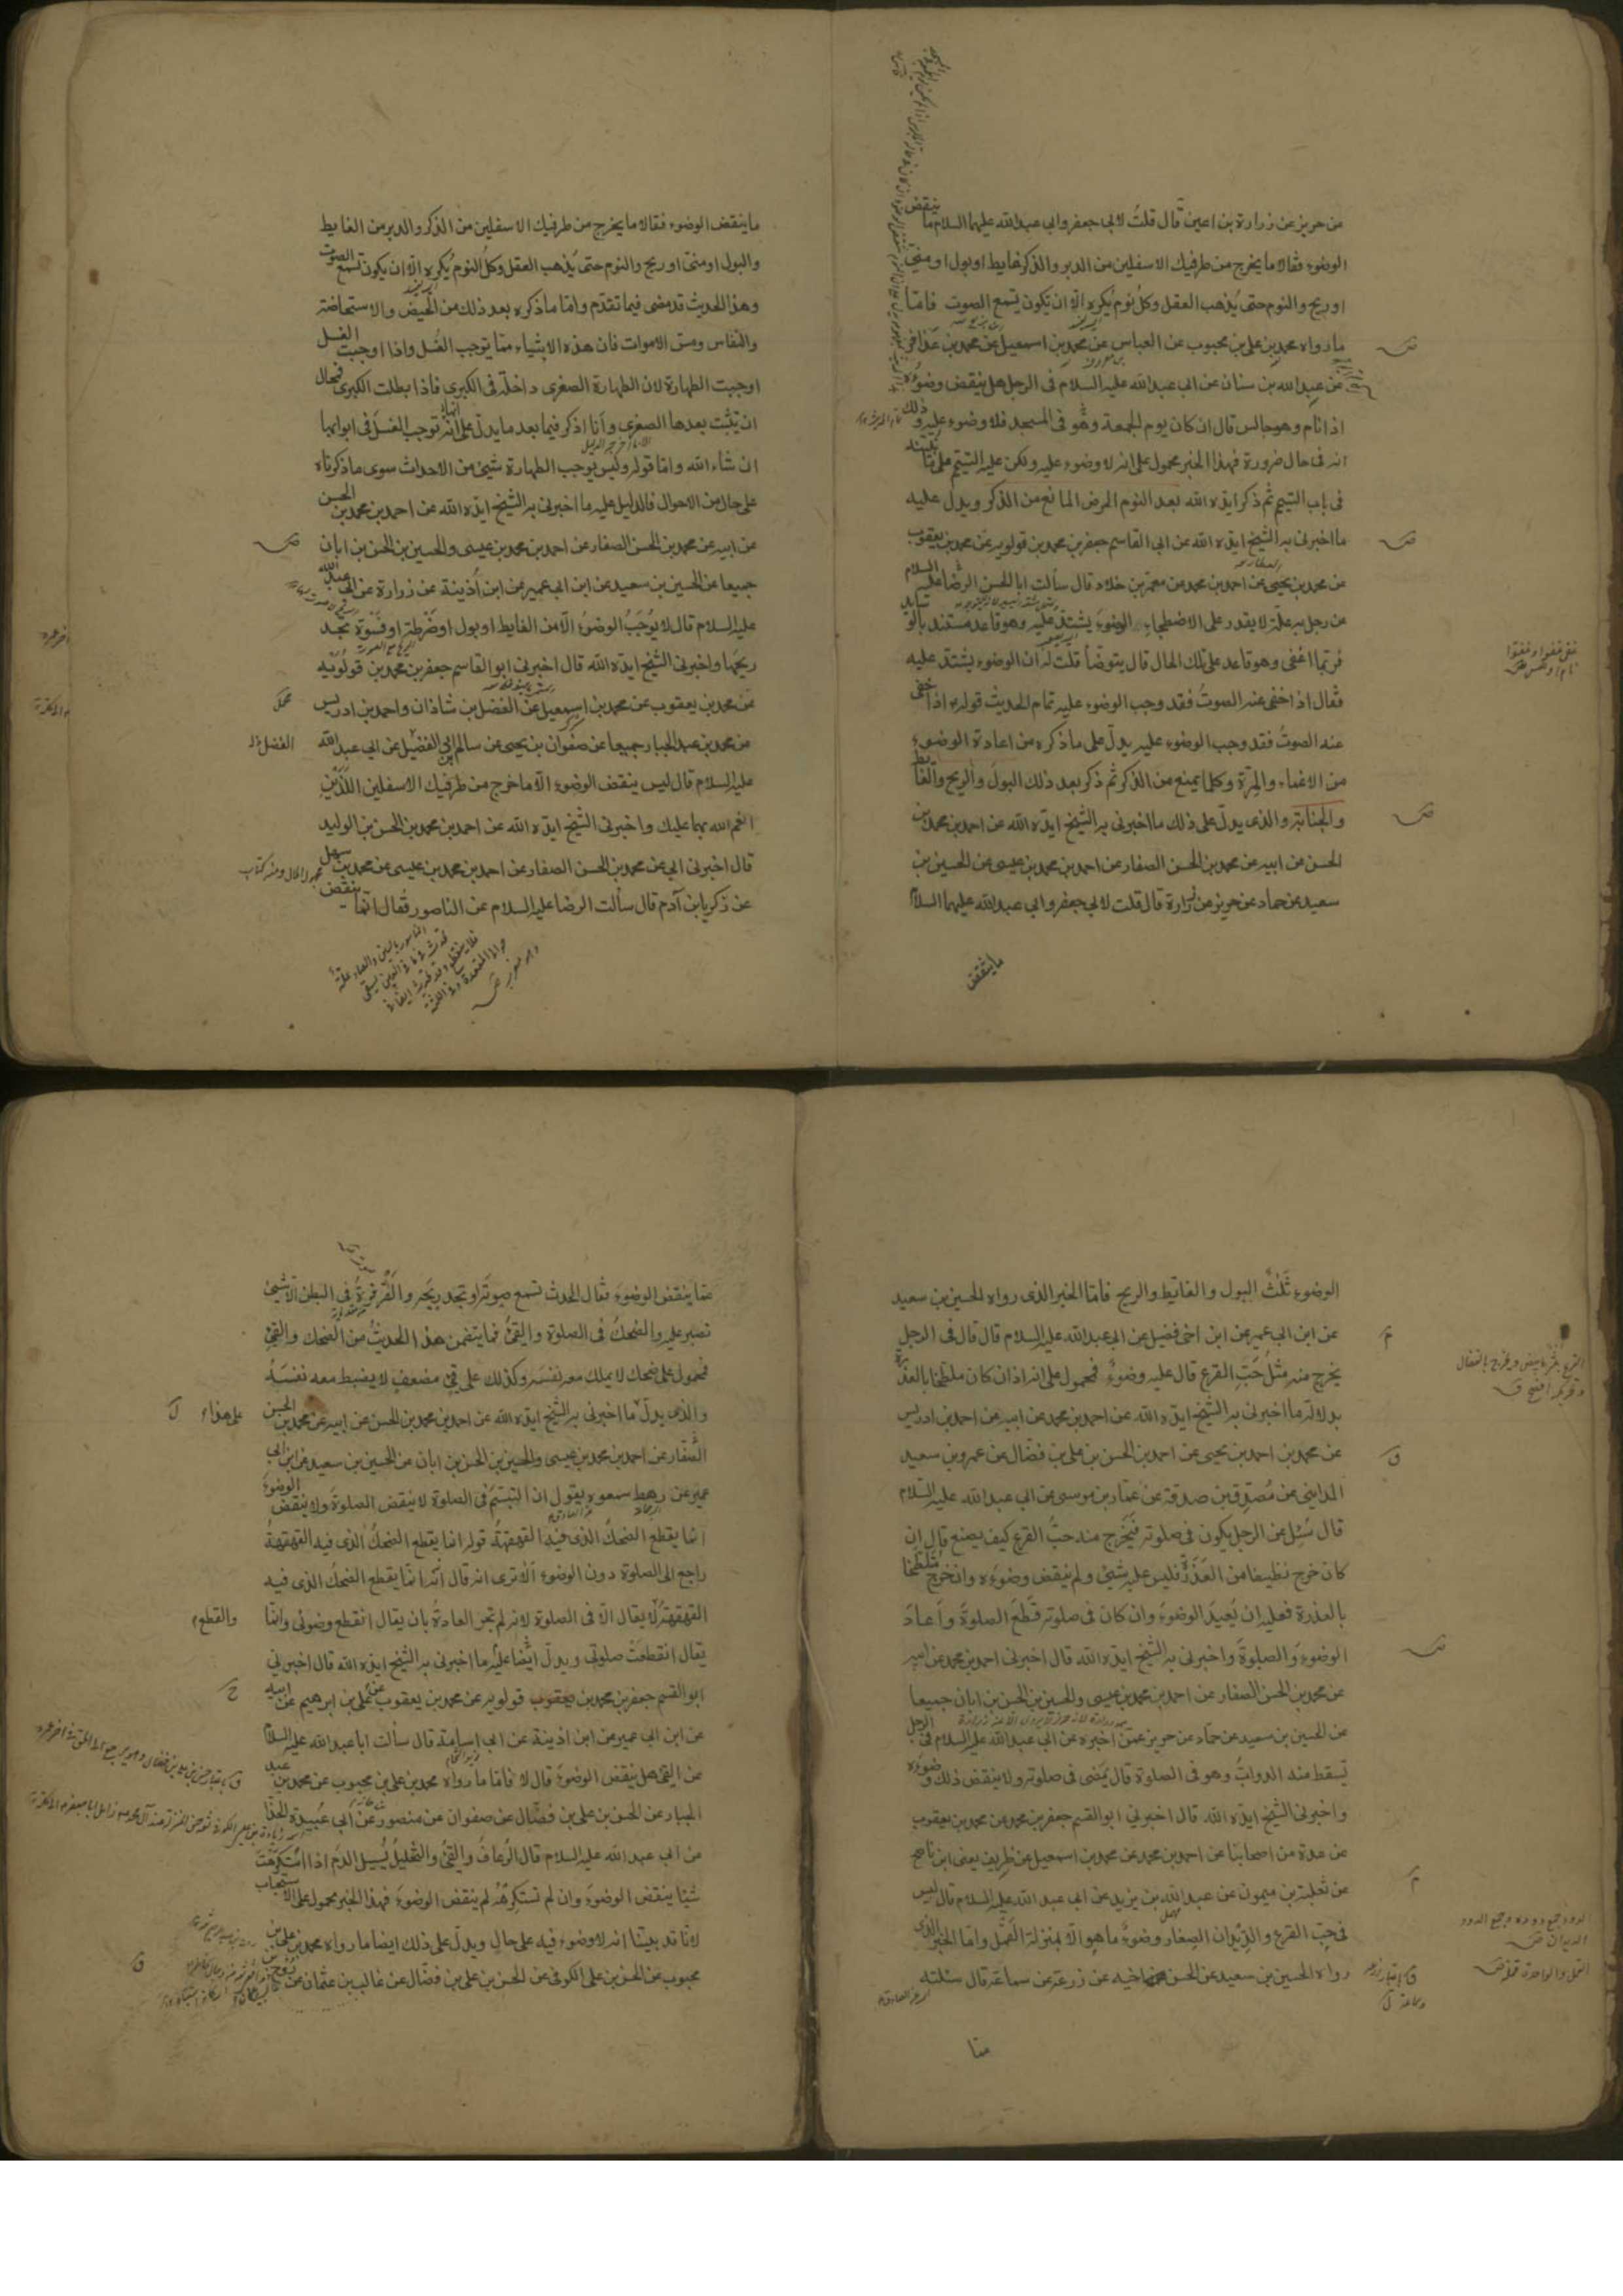 من حريز عن زرارة بن اعين قال قلت لابى جعفر وابي عبد الله عليهما السلام ما ينقض
الوضوء فقالا ما يخرج من طرفيك الاسفلين من الدبر والذكر غايط او بول او منى
او ريح والنوم حتى يُذهب العقل وكل نوم يُكره الّا ان تكون تسمع الصوت فامّا
ما رواه محمد بن على بن محبوب عن العباس عن محمد بن اسمعيل عن محمد بن عذافر
عن عبد الله بن سنان عن ابى عبد الله عليه السلام فى الرجل هل ينقض وضوءه
اذا نام وهو جالس قال ان كان يوم الجمعة وهو فى المسجد فلا وضوء عليه وذلك
انه فى حال ضرورة فهذا الخبر محمول على انه لا وضوء عليه ولكن عليه التيمم على ما نبيّنه
فى باب التيمم ثم ذكر ايده الله بعد النوم المرض المانع من الذكر ويدل عليه
ما اخبرنى به الشيخ ايده الله عن ابى القاسم جعفر بن محمد بن قولويه عن محمد بن يعقوب
عن محمد بن يحيى عن احمد بن محمد عن معمر بن خلاد قال سالت ابا الحسن الرضا عليه السلام
عن رجل به علة لا يقدر على الاضطجاع والوضوء يشتدّ عليه وهو قاعد مستند بالوسايد
فربما اغفى وهو قاعد على تلك الحال قال يتوضأ قلت له ان الوضوء يشتد عليه
فقال اذا خفى عنه الصوت فقد وجب الوضوء عليه تمام الحديث قوله اذا خفى
عنه الصوت فقد وجب الوضوء عليه يدلّ على ما ذكره من اعادة الوضوء
من الاغماء والمرّة وكلما يمنع من الذكر ثم ذكر بعد ذلك البول والريح والغايط
والجنابة والذى يدلّ على ذلك ما اخبرنى به الشيخ ايده الله عن احمد بن محمد بن
الحسن عن ابيه عن محمد بن الحسن الصفار عن احمد بن محمد بن عيسى عن الحسين بن
سعيد عن حماد عن حريز عن زرارة قال قلت لابى جعفر وابى عبد الله عليهما السلام
ما ينقض
ما ينقض الوضوء فقالا ما يخرج من طرفيك الاسفلين من الذكر والدبر من الغايط
والبول او منى او ريح والنوم حتى يُذهب العقل وكل النوم يُكره الّا ان يكون تسمع الصوت
وهذا الحديث قد مضى فيما تقدّم وامّا ما ذكره بعد ذلك من الحيض والاستحاضة
والنفاس ومس الاموات فان هذه الاشياء ممّا توجب الغُسل واذا اوجبت الغسل
اوجبت الطهارة لان الطهارة الصغرى داخلة فى الكبرى فاذا بطلت الكبرى فمحال
ان تثبت بعدها الصغرى وانا اذكر فيما بعد ما يدلّ على انها توجب الغسل فى ابوابها
ان شاء الله وامّا قوله وليس يوجب الطهارة شئ من الاحداث سوى ما ذكرناه
على حال من الاحوال فالدليل عليه ما اخبرنى به الشيخ ايده الله عن احمد بن محمد بن الحسن
عن ابيه عن محمد بن الحسن الصفار عن احمد بن محمد بن عيسى والحسين بن الحسن بن ابان
جميعا عن الحسين بن سعيد عن ابن ابى عمير عن ابن اُذينة عن زرارة عن ابى عبد الله
عليه السلام قال لا يُوجب الوضوء الّا من الغايط او بول او ضرطة او فسوة تجد
ريحها واخبرنى الشيخ ايده الله قال اخبرنى ابو القاسم جعفر بن محمد بن قولويه
عن محمد بن يعقوب عن محمد بن اسمعيل عن الفضل بن شاذان واحمد بن ادريس
عن محمد بن عبد الجبار جميعا عن صفوان بن يحيى عن سالم ابى الفضل عن ابى عبد الله
عليه السلام قال ليس ينقض الوضوء الّا ما خرج من طرفيك الاسفلين اللذين
انعم الله بهما عليك واخبرنى الشيخ ايده الله عن احمد بن محمد بن الحسن بن الوليد
قال اخبرنى ابى عن محمد بن الحسن الصفار عن احمد بن محمد بن عيسى عن محمد بن سهل
عن زكريا بن آدم قال سألت الرضا عليه السلام عن الناصور فقال انما ينقض
الوضوء ثَلَثٌ البول والغائط والريح فامّا الخبر الذى رواه الحسين بن سعيد
عن ابن ابى عمير عن ابن اخى فضيل عن ابى عبد الله عليه السلام قال قال فى الرجل
يخرج منه مثلُ حَبّ القرع قال عليه وضوءٌ فمحمول على انه اذا كان ملطخا بالعذرة
بدلالة ما اخبرنى به الشيخ ايده الله عن احمد بن محمد عن ابيه عن احمد بن ادريس
عن محمد بن احمد بن يحيى عن احمد بن الحسن بن على بن فضال عن عمرو بن سعيد
المداينى عن مصدّق بن صدقة عن عمار بن موسى عن ابى عبد الله عليه السلام
قال سُئل عن الرجل يكون فى صلوته فيخرج منه حبّ القرع كيف يصنع قال ان
كان خرج نظيفا من العَذَرة فليس عليه شئ ولم ينقض وضوءه وان خرج متلطخا
بالعذرة فعليه ان يُعيد الوضوء وان كان فى صلوته قَطَعَ الصلوة واَعادَ
الوضوء والصلوة واخبرنى به الشيخ ايده الله قال اخبرنى احمد بن محمد عن ابيه
عن محمد بن الحسن الصفار عن احمد بن محمد بن عيسى والحسين بن الحسن بن ابان جميعا
عن الحسين بن سعيد عن حمّاد عن حريز عمّن اخبره عن ابى عبد الله عليه السلام فى الرجل
تسقط منه الدوابُّ وهو فى الصلوة قال يمضى فى صلوته ولا ينقض ذلك وضوءه
واخبرنى الشيخ ايده الله قال اخبرنى ابو القسم جعفر بن محمد عن محمد بن يعقوب
عن عدة من اصحابنا عن احمد بن محمد عن محمد بن اسمعيل عن ظريف يعنى ابن ناصح
عن ثعلبة بن ميمون عن عبد الله بن يزيد عن ابى عبد الله عليه السلام قال ليس
فى حبّ القرع والدّيدان الصغار وضوءٌ ما هو الّا بمنزلة القَمّل وامّا الخبر الذى
رواه الحسين بن سعيد عن الحسن اخيه عن زرعة عن سماعة قال سئلته
عمّا
عمّا ينقض الوضوء فقال الحدث تسمع صوته او تجد ريحه والقرقرة فى البطن الا شئ
تصبر عليه والضحك فى الصلوة والقئ فما يتضمن هذا الحديث من الضحك والقئ
فمحمول على ضحك لا يملك معه نفسه وكذلك على قئ مضعف لا يضبط معه نفسه
والذى يدلّ على هذا ما اخبرنى به الشيخ ايده الله عن احمد بن محمد بن الحسن عن ابيه عن محمد بن الحسن
الصفار عن احمد بن محمد بن عيسى والحسين بن الحسن بن ابان عن الحسين بن سعيد عن ابن ابى
عمير عن رهط سمعوه يقول ان التبسّم فى الصلوة لا ينقض الصلوة ولا ينقض الوضوء
انما يقطع الضحكُ الذى فيه القهقهةُ قوله انما يقطع الضحكُ الذى فيه القهقهةُ
راجع الى الصلوة دون الوضوء اَلا ترى انه قال انما يقطع الضحك الذى فيه
القهقهة والقطع لا يقال الّا فى الصلوة لانه لم تجر العادة بان يقال انقطع وضوئى وانما
يقال انقطعت صلوتى ويدلّ ايضا عليه ما اخبرنى به الشيخ ايده الله قال اخبرنى
ابو القسم جعفر بن محمد بن قولويه عن محمد بن يعقوب عن على بن ابرهيم عن ابيه
عن ابن ابى عمير عن ابن اذينة عن ابى اسامة قال سألت ابا عبد الله عليه السلام
عن القئ هل ينقض الوضوء قال لا فامّا ما رواه محمد بن على بن محبوب عن محمد بن عبد
الجبار عن الحسن بن على بن فضّال عن صفوان عن منصور عن ابى عُبيدة الحذّا
عن ابى عبد الله عليه السلام قال الرُعافُ والقئُ والتخليلُ يُسيل الدم اذا استكرهت
شيئا ينقض الوضوء وان لم تستكرهه لم ينقض الوضوء فهذا الخبر محمول على الاستحباب
لانّا قد بيّنا انه لا وضوء فيه على حال ويدلّ على ذلك ايضا ما رواه محمد بن على بن
محبوب عن الحسن بن على الكوفى عن الحسن بن على بن فضّال عن غالب بن عثمان عن روح بن